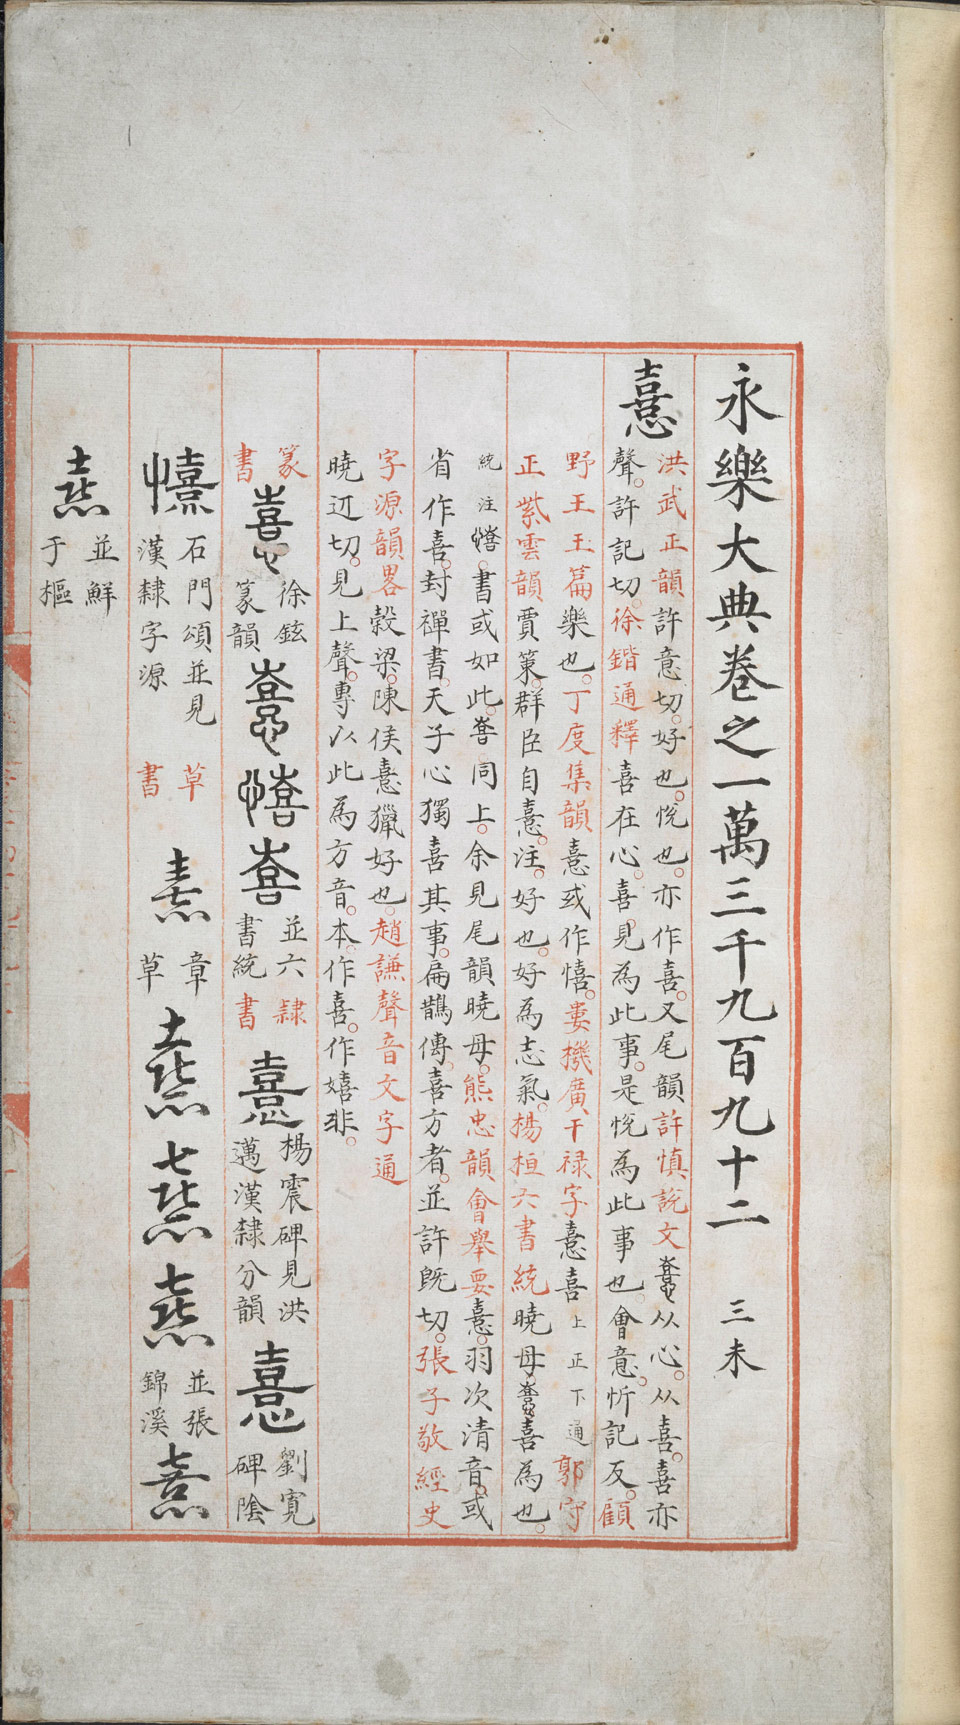 永樂大典卷之一萬三千九百九十二 三未
憙
洪武正韻許意切。好也。悅也。亦作喜。又尾韻許慎說文憙从心。从喜。喜亦
聲。許記切。徐鍇通釋喜在心。喜見為此事。是悅為此事也會意。忻記反。顧
野王玉篇樂也。丁度集韻憙或作憘。婁機廣干禄字憙喜上正下通郭守
正紫雲韻賈策。群臣自憙。注。好也。好為志氣。楊桓六書統曉母憙喜為也。
統注憘書或如此。喜同上。余見尾韻曉母。熊忠韻會舉要憙。羽次清音。或
省作喜。封禪書。天子心獨喜其事。扁鵲傳。喜方者。並許旣切。張子敬經史
字源韻畧穀梁。陳侯憙獵好也。趙謙聲音文字通
曉迓切。見上聲。專以此為方音。本作喜。作嬉非。
篆書
憙 徐鉉篆韻
憙憘喜 並六書統
隸書
憙 楊震碑見洪邁漢隸分韻
憙 劉寬碑陰
憘 石門頌並見漢隸字源
草書
憙 章草
憙憙憙 並張錦溪
憙
憙 並鮮于樞